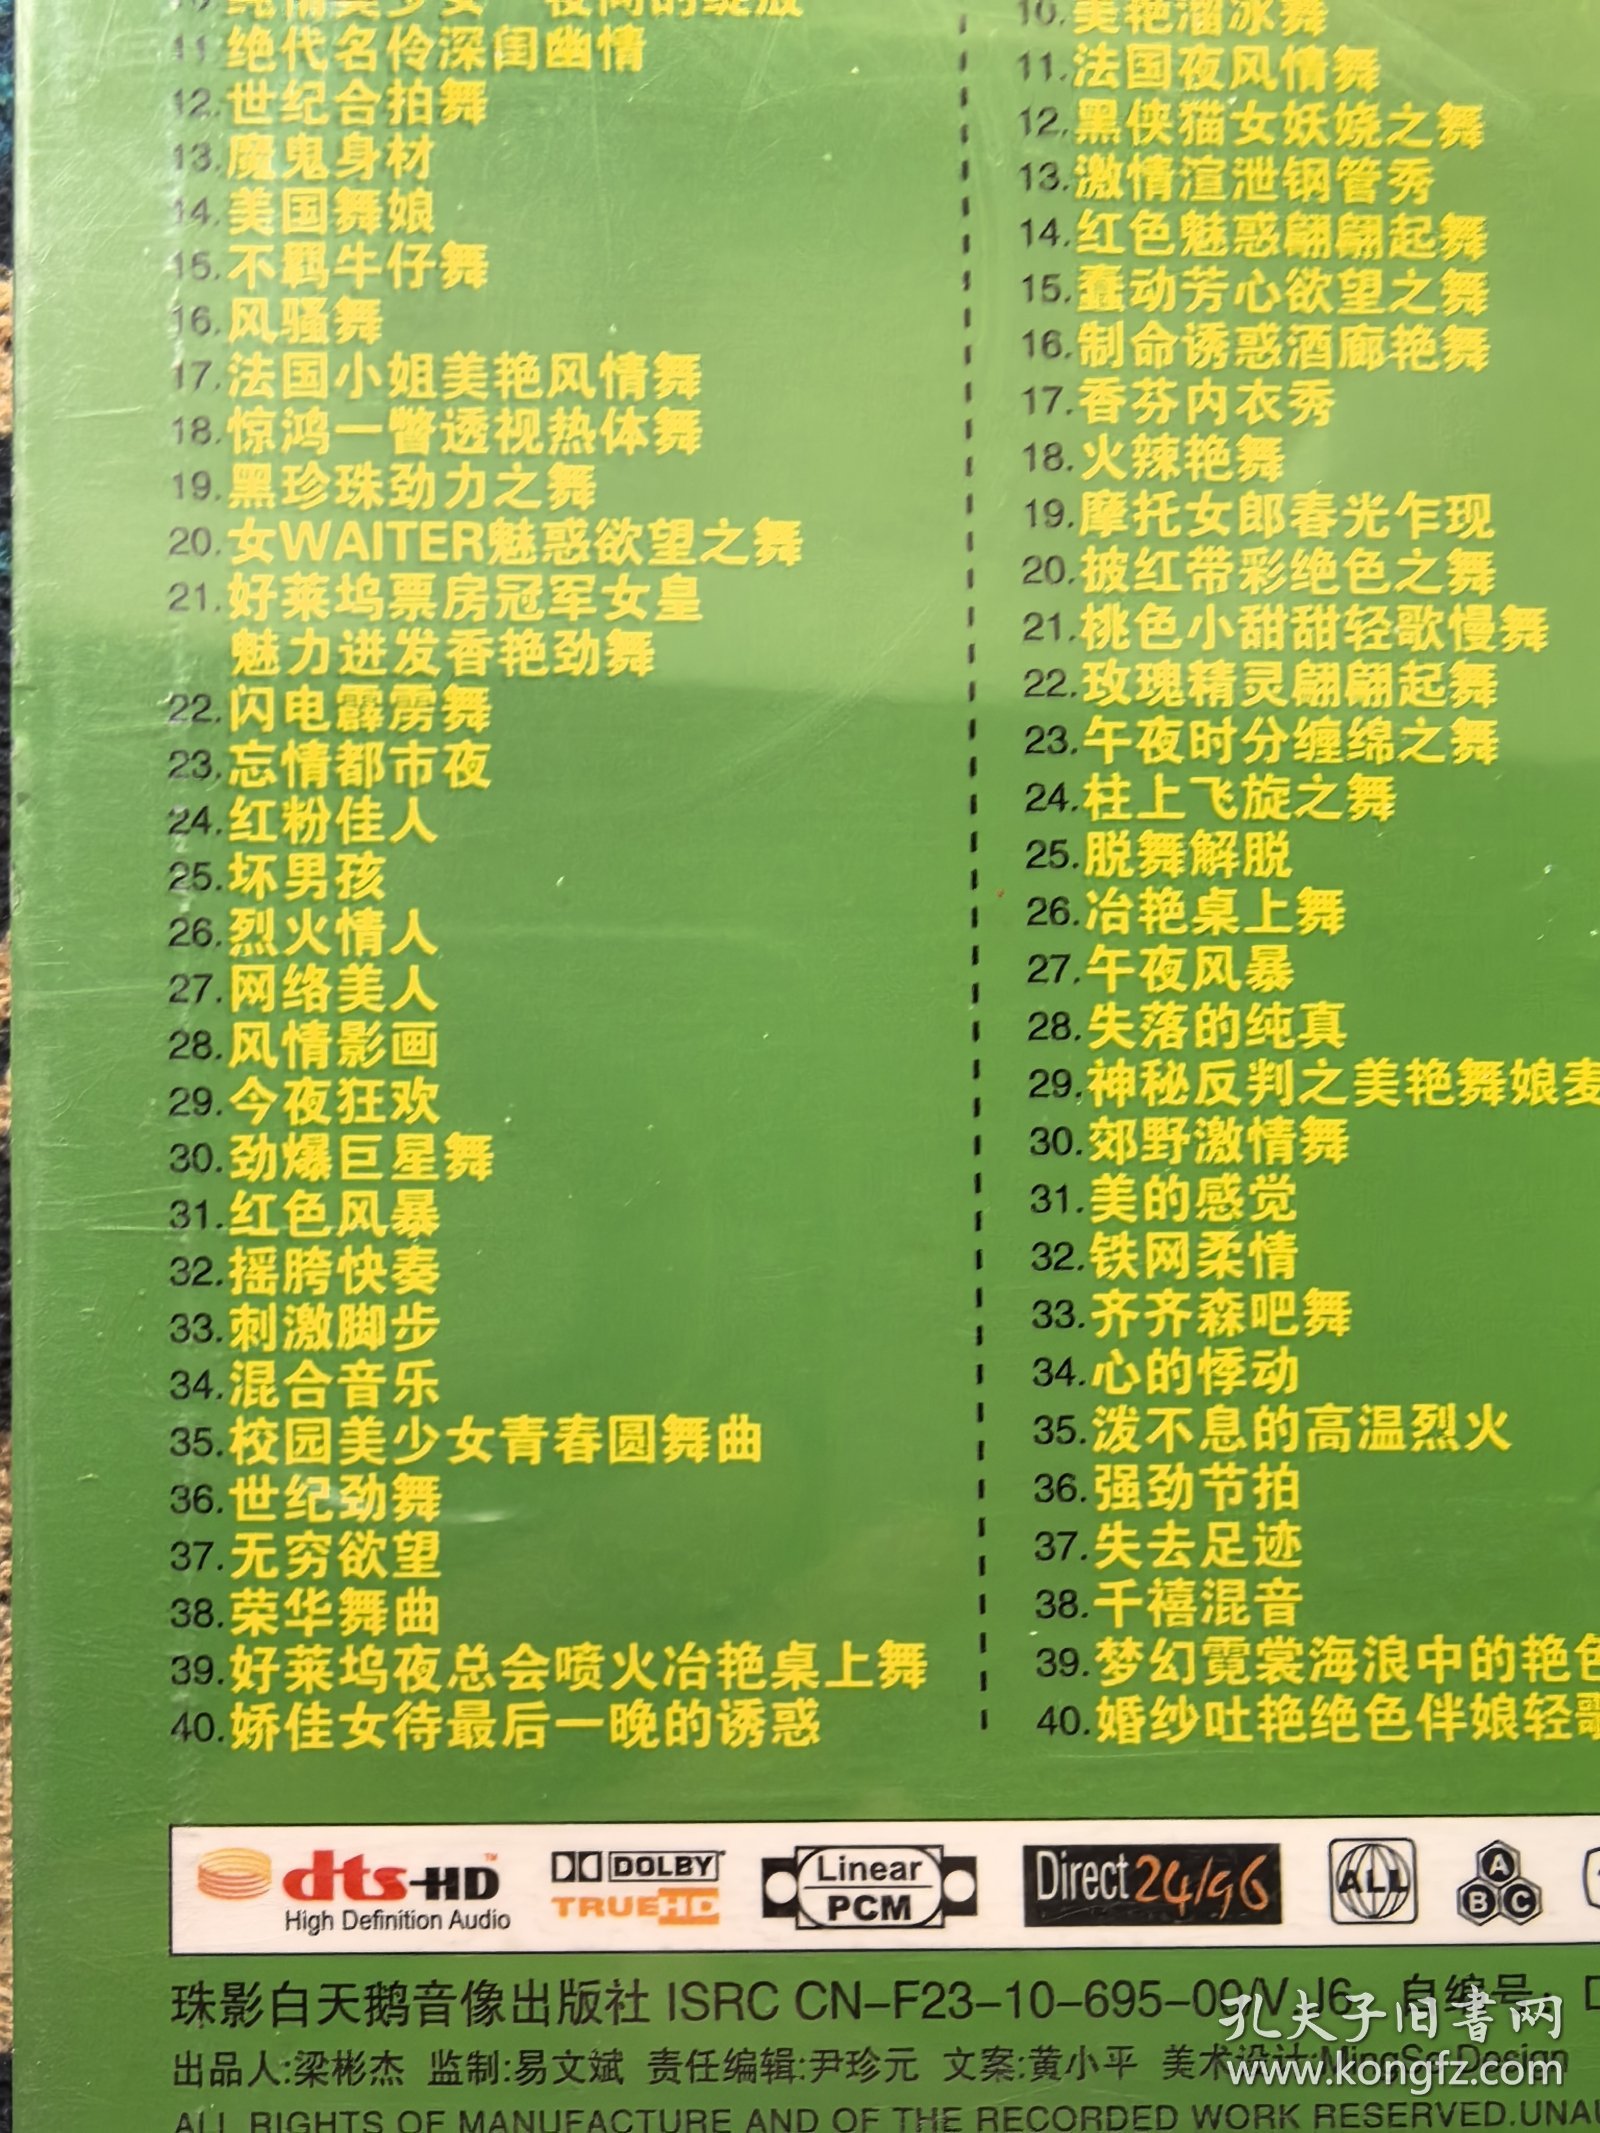 11.绝代名伶深闺幽情
12.世纪合拍舞
13.魔鬼身材
14.美国舞娘
15.不羁牛仔舞
16.风骚舞
17.法国小姐美艳风情舞
18.惊鸿一瞥透视热体舞
19.黑珍珠劲力之舞
20.女WAITER魅惑欲望之舞
21.好莱坞票房冠军女皇
魅力迸发香艳劲舞
22.闪电霹雳舞
23.忘情都市夜
24.红粉佳人
25.坏男孩
26.烈火情人
27.网络美人
28.风情影画
29.今夜狂欢
30.劲爆巨星舞
31.红色风暴
32.摇胯快奏
33.刺激脚步
34.混合音乐
35.校园美少女青春圆舞曲
36.世纪劲舞
37.无穷欲望
38.荣华舞曲
39.好莱坞夜总会喷火冶艳桌上舞
40.娇佳女待最后一晚的诱惑
10.美艳溜冰舞
11.法国夜风情舞
12.黑侠猫女妖娆之舞
13.激情渲泄钢管秀
14.红色魅惑翩翩起舞
15.蠢动芳心欲望之舞
16.制命诱惑酒廊艳舞
17.香芬内衣秀
18.火辣艳舞
19.摩托女郎春光乍现
20.披红带彩绝色之舞
21.桃色小甜甜轻歌慢舞
22.玫瑰精灵翩翩起舞
23.午夜时分缠绵之舞
24.柱上飞旋之舞
25.脱舞解脱
26.冶艳桌上舞
27.午夜风暴
28.失落的纯真
29.神秘反判之美艳舞娘麦
30.郊野激情舞
31.美的感觉
32.铁网柔情
33.齐齐森吧舞
34.心的悸动
35.泼不息的高温烈火
36.强劲节拍
37.失去足迹
38.千禧混音
39.梦幻霓裳海浪中的艳色
40.婚纱吐艳绝色伴娘轻歌
dts-HD™
High Definition Audio
DOLBY
TRUEHD
Linear
PCM
Direct 24/96
ALL
A
B C
珠影白天鹅音像出版社 ISRC CN-F23-10-695-00/V.J6 自编号:
出品人:梁彬杰 监制:易文斌 责任编辑:尹珍元 文案:黄小平 美术设计:MingSe Design
ALL RIGHTS OF MANUFACTURE AND OF THE RECORDED WORK RESERVED.UNAU
孔夫子旧书网
www.kongfz.com